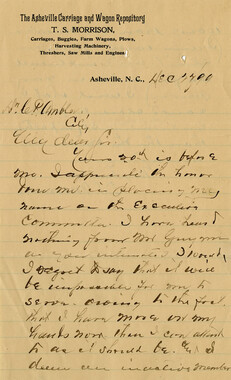 The Asheville Carriage and Wagon Repository
T. S. MORRISON,
Carriages, Buggies, Farm Wagons, Plows,
Harvesting Machinery,
Threshers, Saw Mills and Engines
Asheville, N. C., Dec 1900
Ambler,
City
My dear Sir
Yours 20th is before
me. I appreciate the honor
done me in placing my
name on the Executive
Committee. I have heard
nothing from
I regret to say that it will
be impossible for me to
serve. owing to the fact
that I have more on my
hands now than I can attend
to as it should be. and I
deem an inactive member